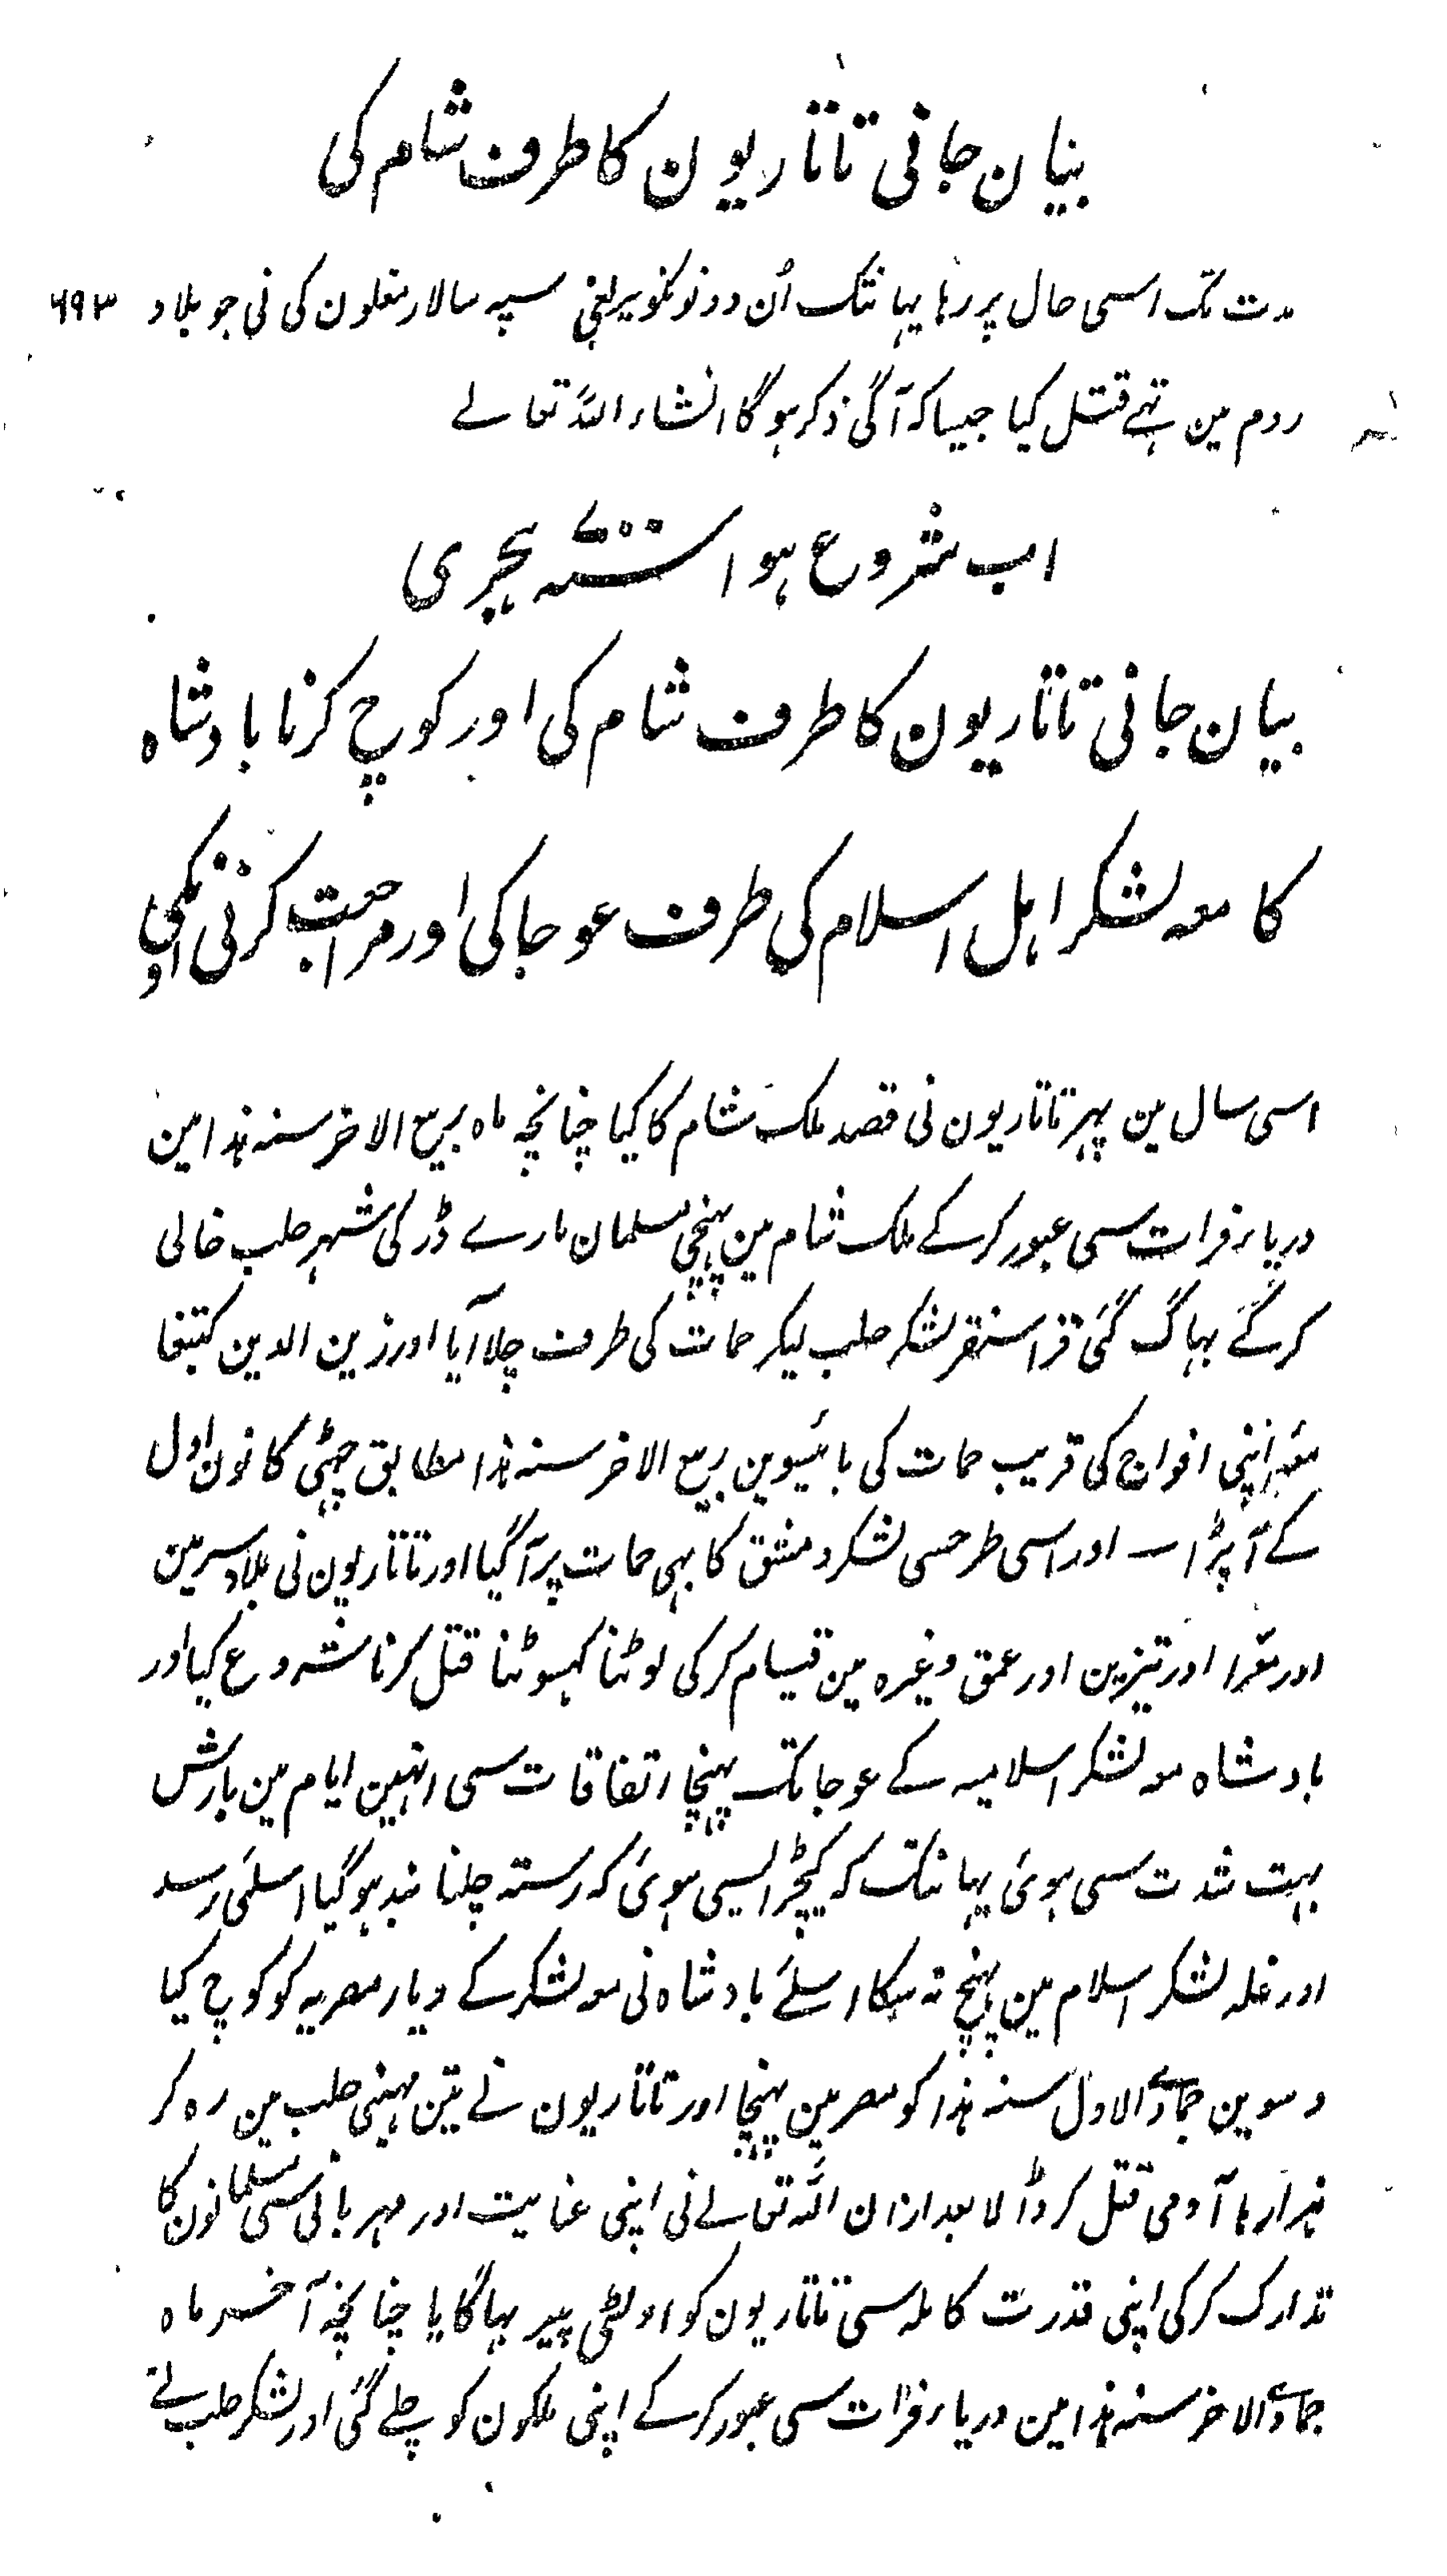 بیان جانی تاتاریون کا طرف شام کی
مدت تک اسی حال پر رہا یہانتک اُن دونونکو بیرلغی سپہ سالار مغلون کی نی جو بلاد ۶۹۳
روم مین تہے قتل کیا جیسا کہ آگی ذکر ہو گا انشاء اللہ تعالے
اب شروع ہوا سنہ۷۰۰ ہجری
بیان جانی تاتاریون کا طرف شام کی اور کوچ کرنا بادشاہ
کا معہ لشکر اہل اسلام کی طرف عوجا کی اور مراجعت کرنی اونکی
اسی سال مین پہر تاتاریون نی قصد ملک شام کا کیا چنانچہ ماہ ربیع الاخر سنہ ہذا مین
دریاء فرات سی عبور کر کے ملک شام مین پہنچی مسلمان مارے ڈر کی شہر حلب خالی
کر گے بہاگ گئی قراسنقر لشکر حلب لیکر حمات کی طرف چلا آیا اور زین الدین کتبغا
معہ اپنی افواج کی قریب حمات کی بائیسوین ربیع الاخر سنہ ہذا مطابق چہٹی کانون اول
کے آ پڑا اور اسی طرحسی لشکر دمشق کا بہی حمات پر آ گیا اور تاتاریون نی بلاد سرمین
اور معرا اور تیزین اور عمق وغیرہ مین قیام کر کی لوٹنا کہسوٹنا قتل کرنا شروع کیا اور
بادشاہ معہ لشکر اسلامیہ کے عوجا تک پہنچا اتفاقات سی انہین ایام مین بارش
بہت شدت سی ہوئی یہانتک کہ کیچڑ ایسی ہوئی کہ رستہ چلنا بند ہو گیا اسلئی رسد
اور غلہ لشکر اسلام مین پہنچ نہ سکا اسلئے بادشاہ نی معہ لشکر کے دیار مصریہ کو کوچ کیا
دسوین جمادے الاول سنہ ہذا کو مصر مین پہنچا اور تاتاریون نے تین مہینی حلب مین رہ کر
ہزارہا آدمی قتل کر ڈالا بعد ازان اللہ تعالے نی اپنی عنایت اور مہربانی سی مسلمانون کا
تدارک کر کی اپنی قدرت کاملہ سی تاتاریون کو اولٹی پیر بہاگایا چنانچہ آخر ماہ
جمادے الاخر سنہ ہذا مین دریاء فرات سی عبور کر کے اپنی ملکون کو چلے گئی اور لشکر حلب نے